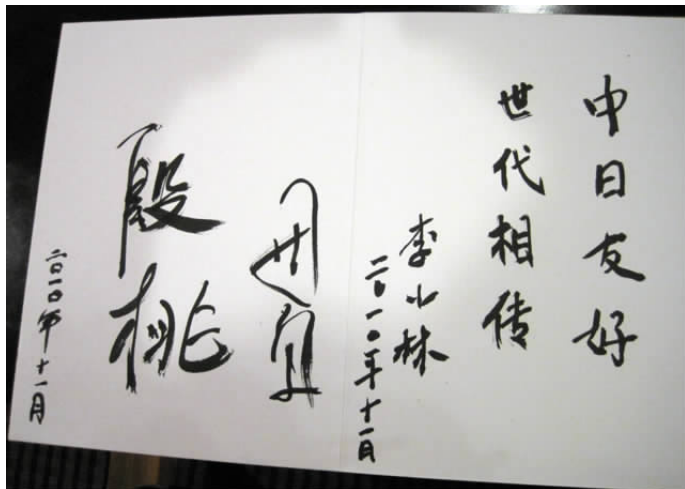 中日友好
世代相传
李小林
二〇一〇年十一月
殷桃
二〇一〇年十一月